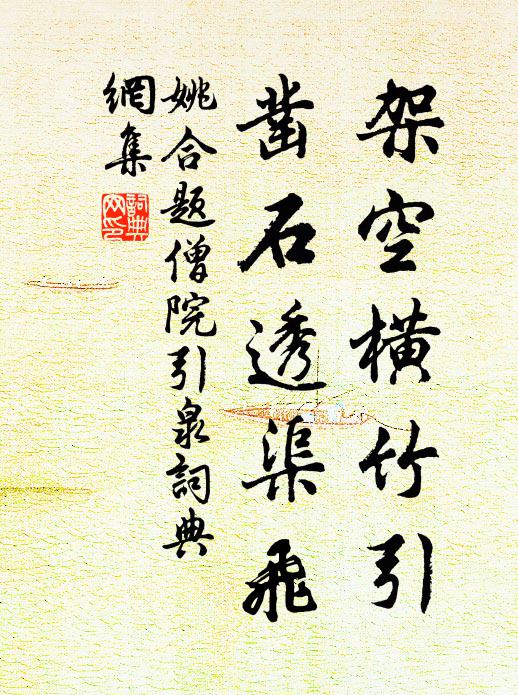 架空横竹引
凿石透渠飛
姚合题僧院引泉詞典
網集
詞典
网印